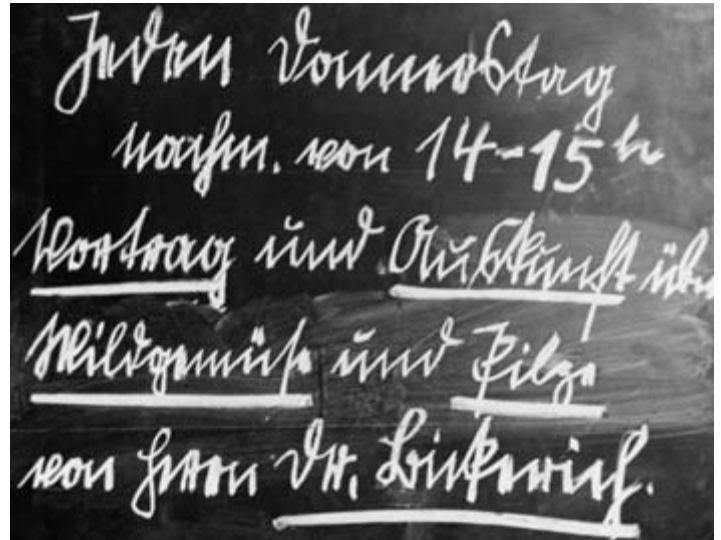 Jeden Donnerstag
nachm. von 14-15 h
Vortrag und Auskunft über
Wildgemüse und Pilze
von Herrn Dr.